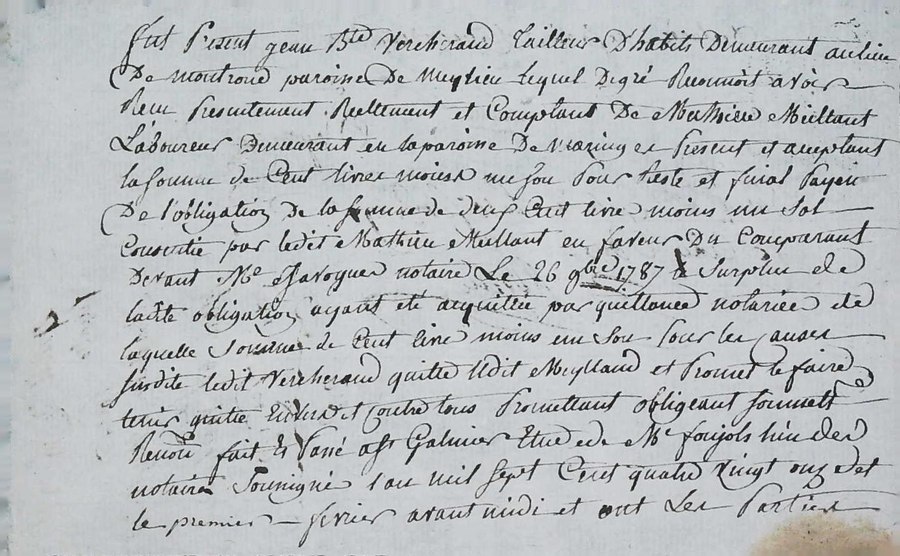 fut Present jean Bte Vercherand tailleur D'habits Demeurant au lieu
De montrond paroisse De Meylieu lequel De gré Reconnoit avoir
Reçu Presentement Reellement et Comptant De Mathieu Meillant
Laboureur Demeurant en la paroisse De Present et acceptant
la somme de Cent livres moins un sou Pour Reste et final Payem
De l'obligation De la somme de deux Cent livre moins un Sol
Consentie par ledit Mathieu Meillant en faveur Du Comparant
Devant Me Javogues notaire Le 26 9bre 1787 le Surplus de
ladte obligation ayant été acquittée par quittance notariée de
laquelle Somme de Cent livre moins un Sou Pour les causes
susdite ledit Vercherand quitte ledit Meylland et Promet le faire
tenir quitte Envers et Contre tous Promettant obligeant soumett
Renon fait Et Passé a St Galmier Etude de Me foujols l'un des
notaires Soussigné l'an mil sept Cent quatre vingt onze et
le premier fevrier avant midi et ont Les Parties
2